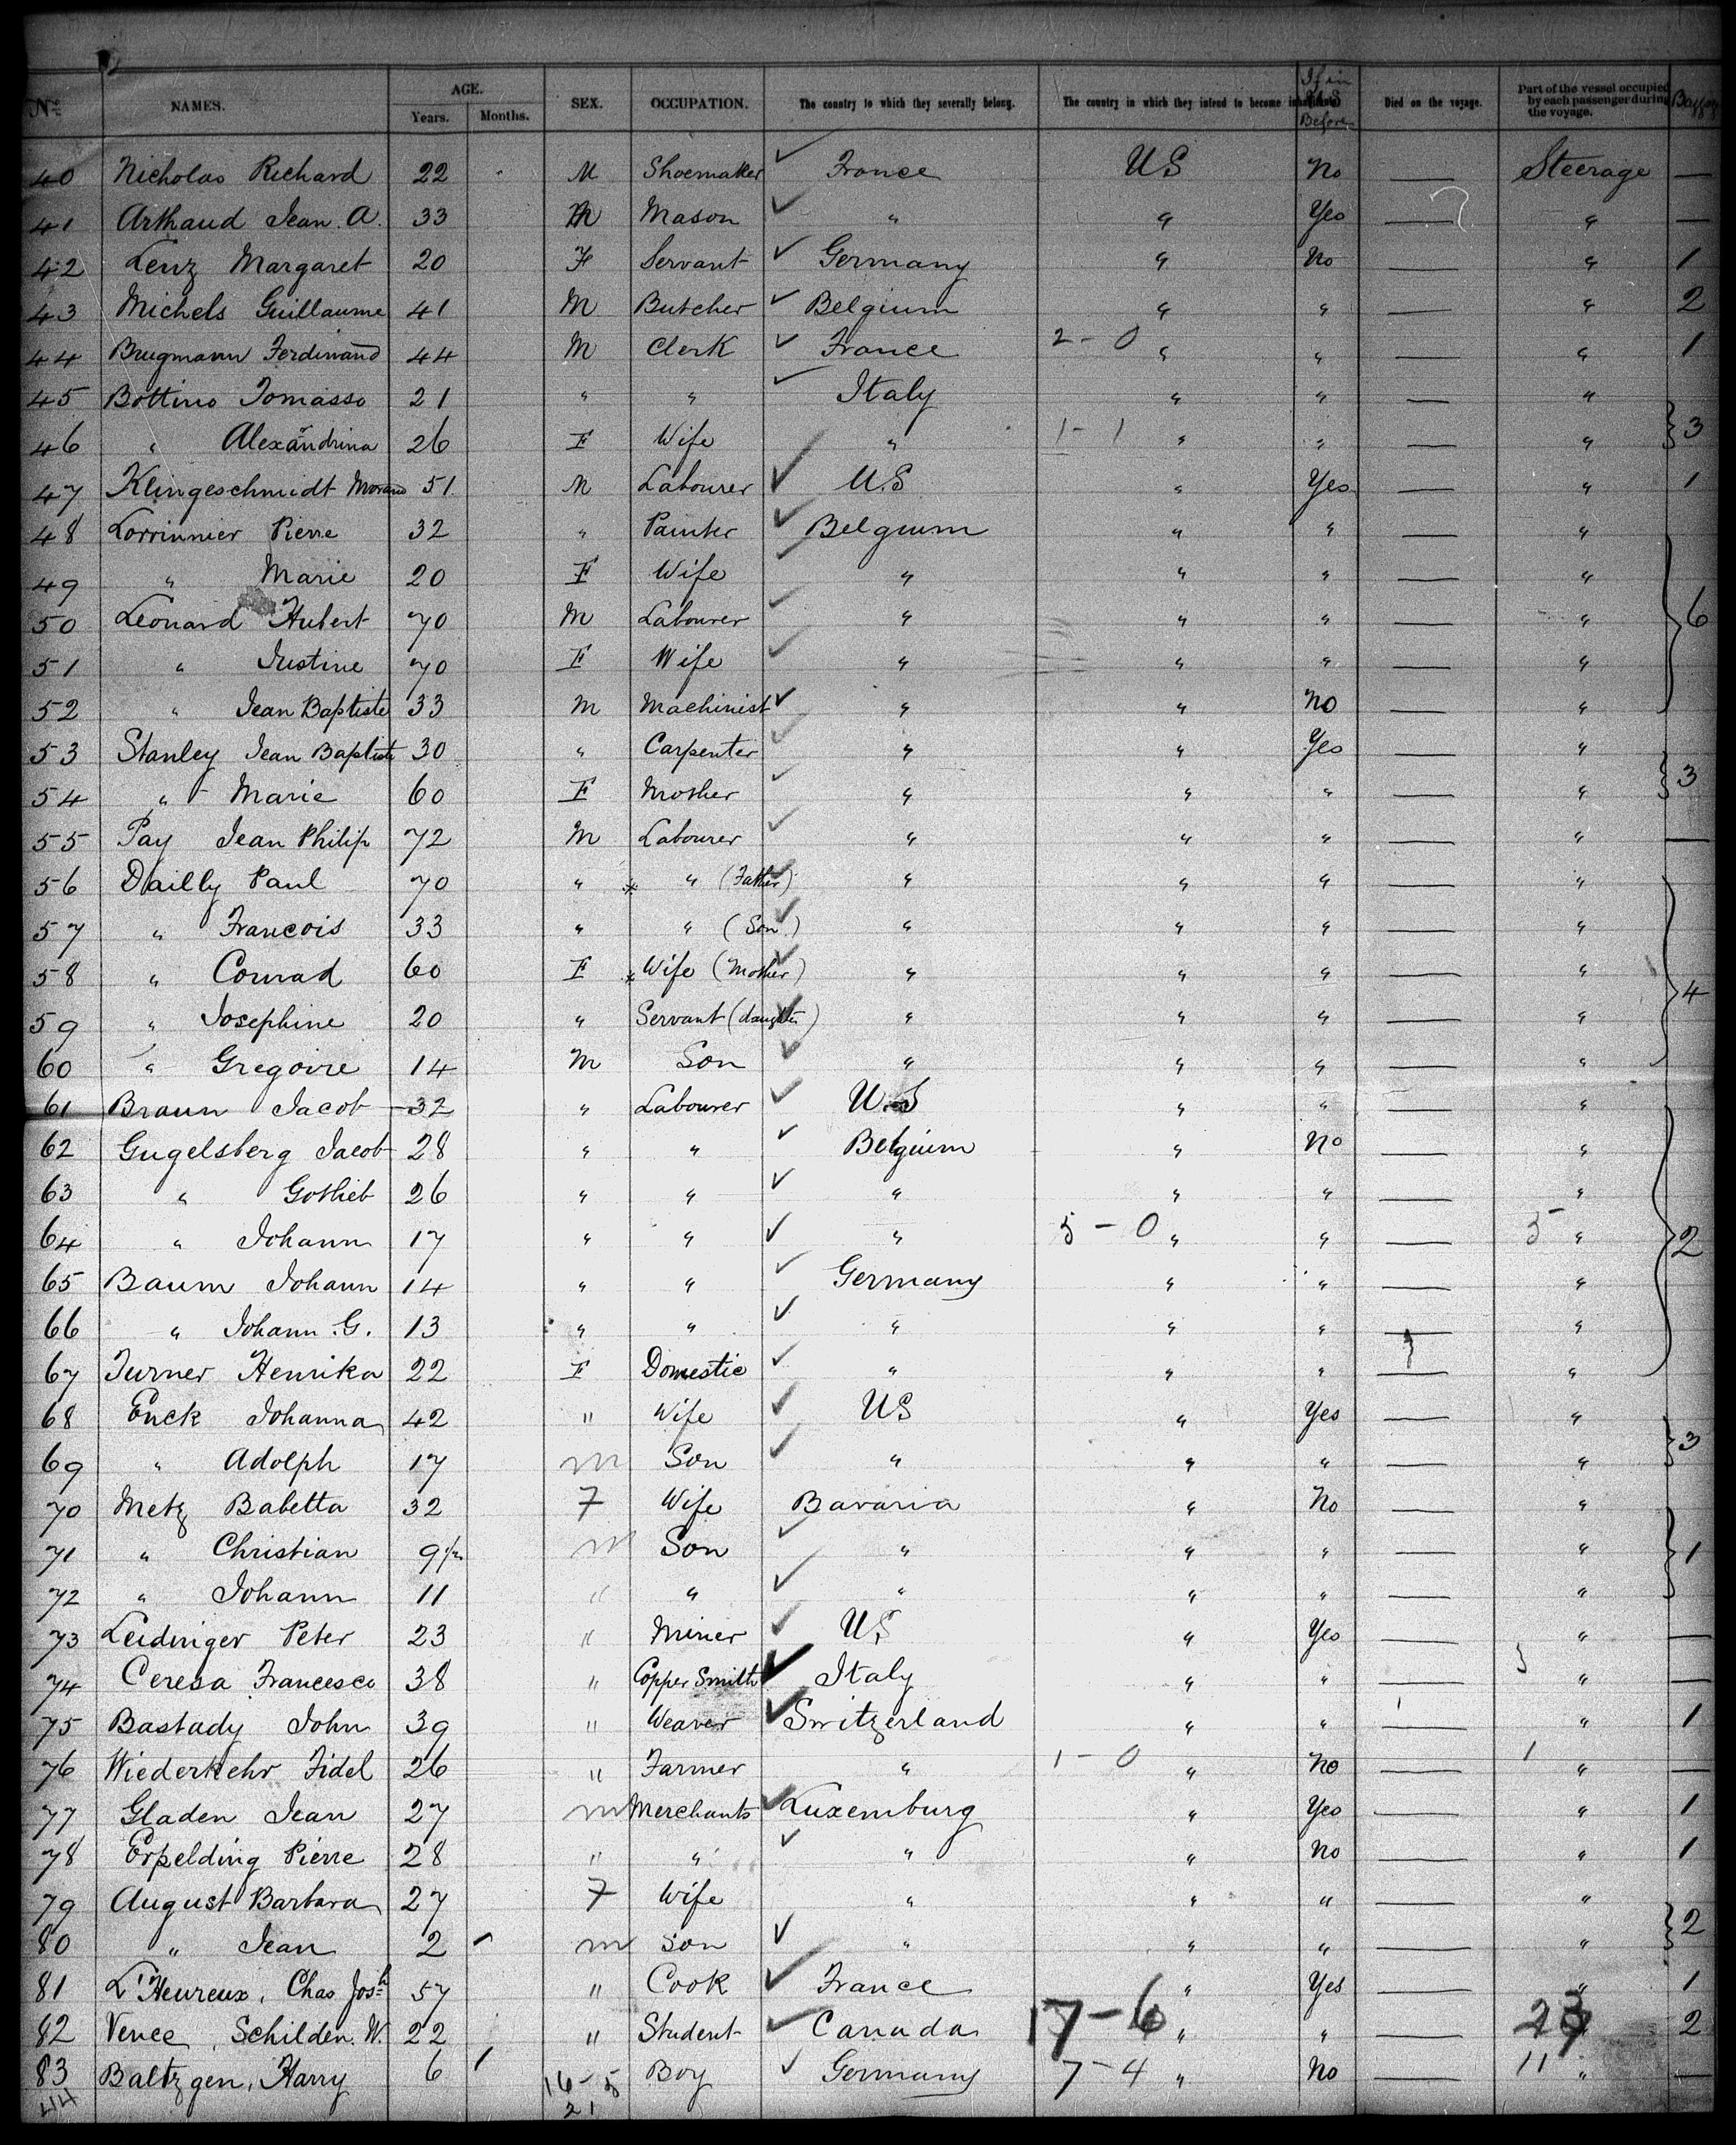 Nº NAMES. AGE. Years. Months. SEX. OCCUPATION. The country to which they severally belong. The country in which they intend to become inhabitants. If in U.S. Before Died on the voyage. Part of the vessel occupied by each passenger during the voyage.
40 Nicholas Richard 22 M Shoemaker ✓ France US No — Steerage —
41 Arthaud Jean. A. 33 M Mason ✓ " " Yes — " —
42 Lenz Margaret 20 F Servant ✓ Germany " No — " 1
43 Michels Guillaume 41 M Butcher ✓ Belgium " " — " 2
44 Brugmann Ferdinand 44 M Clerk ✓ France 2-0 " " — " 1
45 Bottino Tomasso 21 " " ✓ Italy " " — "
46 " Alexandrina 26 F Wife ✓ " 1-1 " " — " } 3
47 Klingeschmidt 51 M Labourer ✓ U.S " Yes — " 1
48 Lorrinnier Pierre 32 " Painter ✓ Belgium " " — "
49 " Marie 20 F Wife ✓ " " " — "
50 Leonard Hubert 70 M Labourer ✓ " " " — " } 6
51 " Justine 70 F Wife ✓ " " " — "
52 " Jean Baptiste 33 M Machinist ✓ " " No — "
53 Stanley Jean Baptiste 30 " Carpenter ✓ " " Yes — "
54 " Marie 60 F Mother ✓ " " " — " } 3
55 Pay Jean Philip 72 M Labourer ✓ " " " — " —
56 Dailly Paul 70 " * " (Father) ✓ " " " — "
57 " Francois 33 " " (Son) ✓ " " " — "
58 " Conrad 60 F * Wife (Mother) ✓ " " " — "
59 " Josephine 20 " Servant (daughter) ✓ " " " — " } 4
60 " Gregoire 14 M Son ✓ " " " — "
61 Braun Jacob 32 " Labourer ✓ U.S " " — "
62 Gugelsberg Jacob 28 " " ✓ Belgium " No — "
63 " Gotlieb 26 " " ✓ " " " — "
64 " Johann 17 " " ✓ " 5-0 " " — 5 " } 2
65 Baum Johann 14 " " ✓ Germany " " — "
66 " Johann. G. 13 " " ✓ " " " — "
67 Turner Henrika 22 F Domestic ✓ " " " — "
68 Enck Johanna 42 " Wife ✓ US " Yes — "
69 " Adolph 17 m Son ✓ " " " — " } 3
70 Metz Babetta 32 F Wife Bavaria " No — "
71 " Christian 9 1/2 m Son ✓ " " " — " } 1
72 " Johann 11 " " ✓ " " " — "
73 Leidinger Peter 23 " Miner ✓ U.S " Yes — " —
74 Ceresa Francesco 38 " Copper Smith ✓ Italy " " — " —
75 Bastady John 39 " Weaver ✓ Switzerland " " — " 1
76 Wiederkehr Fidel 26 " Farmer " 1-0 " No — 1 " —
77 Gladen Jean 27 m Merchants ✓ Luxemburg " Yes — " 1
78 Erpelding Pierre 28 " " ✓ " " No — " 1
79 August Barbara 27 F Wife " " " — "
80 " Jean 2 m Son ✓ " " " — " } 2
81 L'Heureux, Chas Josh 57 " Cook ✓ France " Yes — " 1
82 Vence, Schilden. W. 22 " Student ✓ Canada 17-6 " " — " 2
83 Baltzgen, Harry 6 Boy ✓ Germany 7-4 " No — 11 " —
44 16-5
21